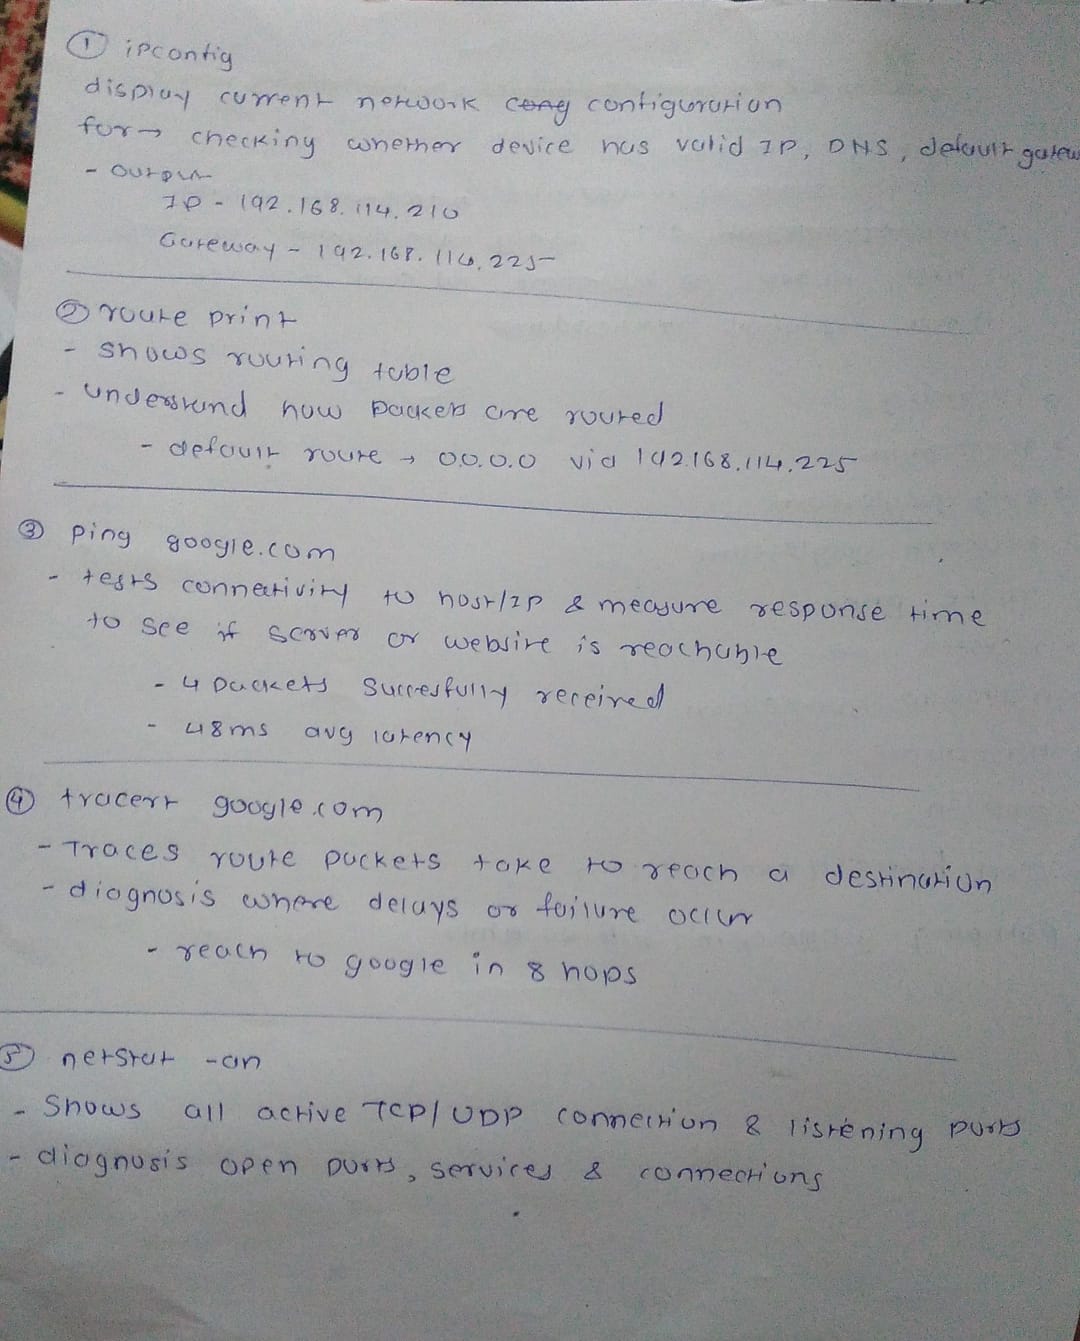 ① ipconfig
display current network config configuration
for → checking whether device has valid IP, DNS, default gatew
- Output
IP - 192.168.114.210
Gateway - 192.168.114.225
② route print
- shows routing table
- understand how packets are routed
- default route → 0.0.0.0 via 192.168.114.225
③ ping google.com
- tests connectivity to host/IP & measure response time
to see if server or website is reachable
- 4 packets succesfully received
- 48ms avg latency
④ tracert google.com
- Traces route packets take to reach a destination
- diagnosis where delays or failure occur
- reach to google in 8 hops
⑤ netstat -an
- Shows all active TCP/UDP connection & listening ports
- diagnosis open ports, services & connections